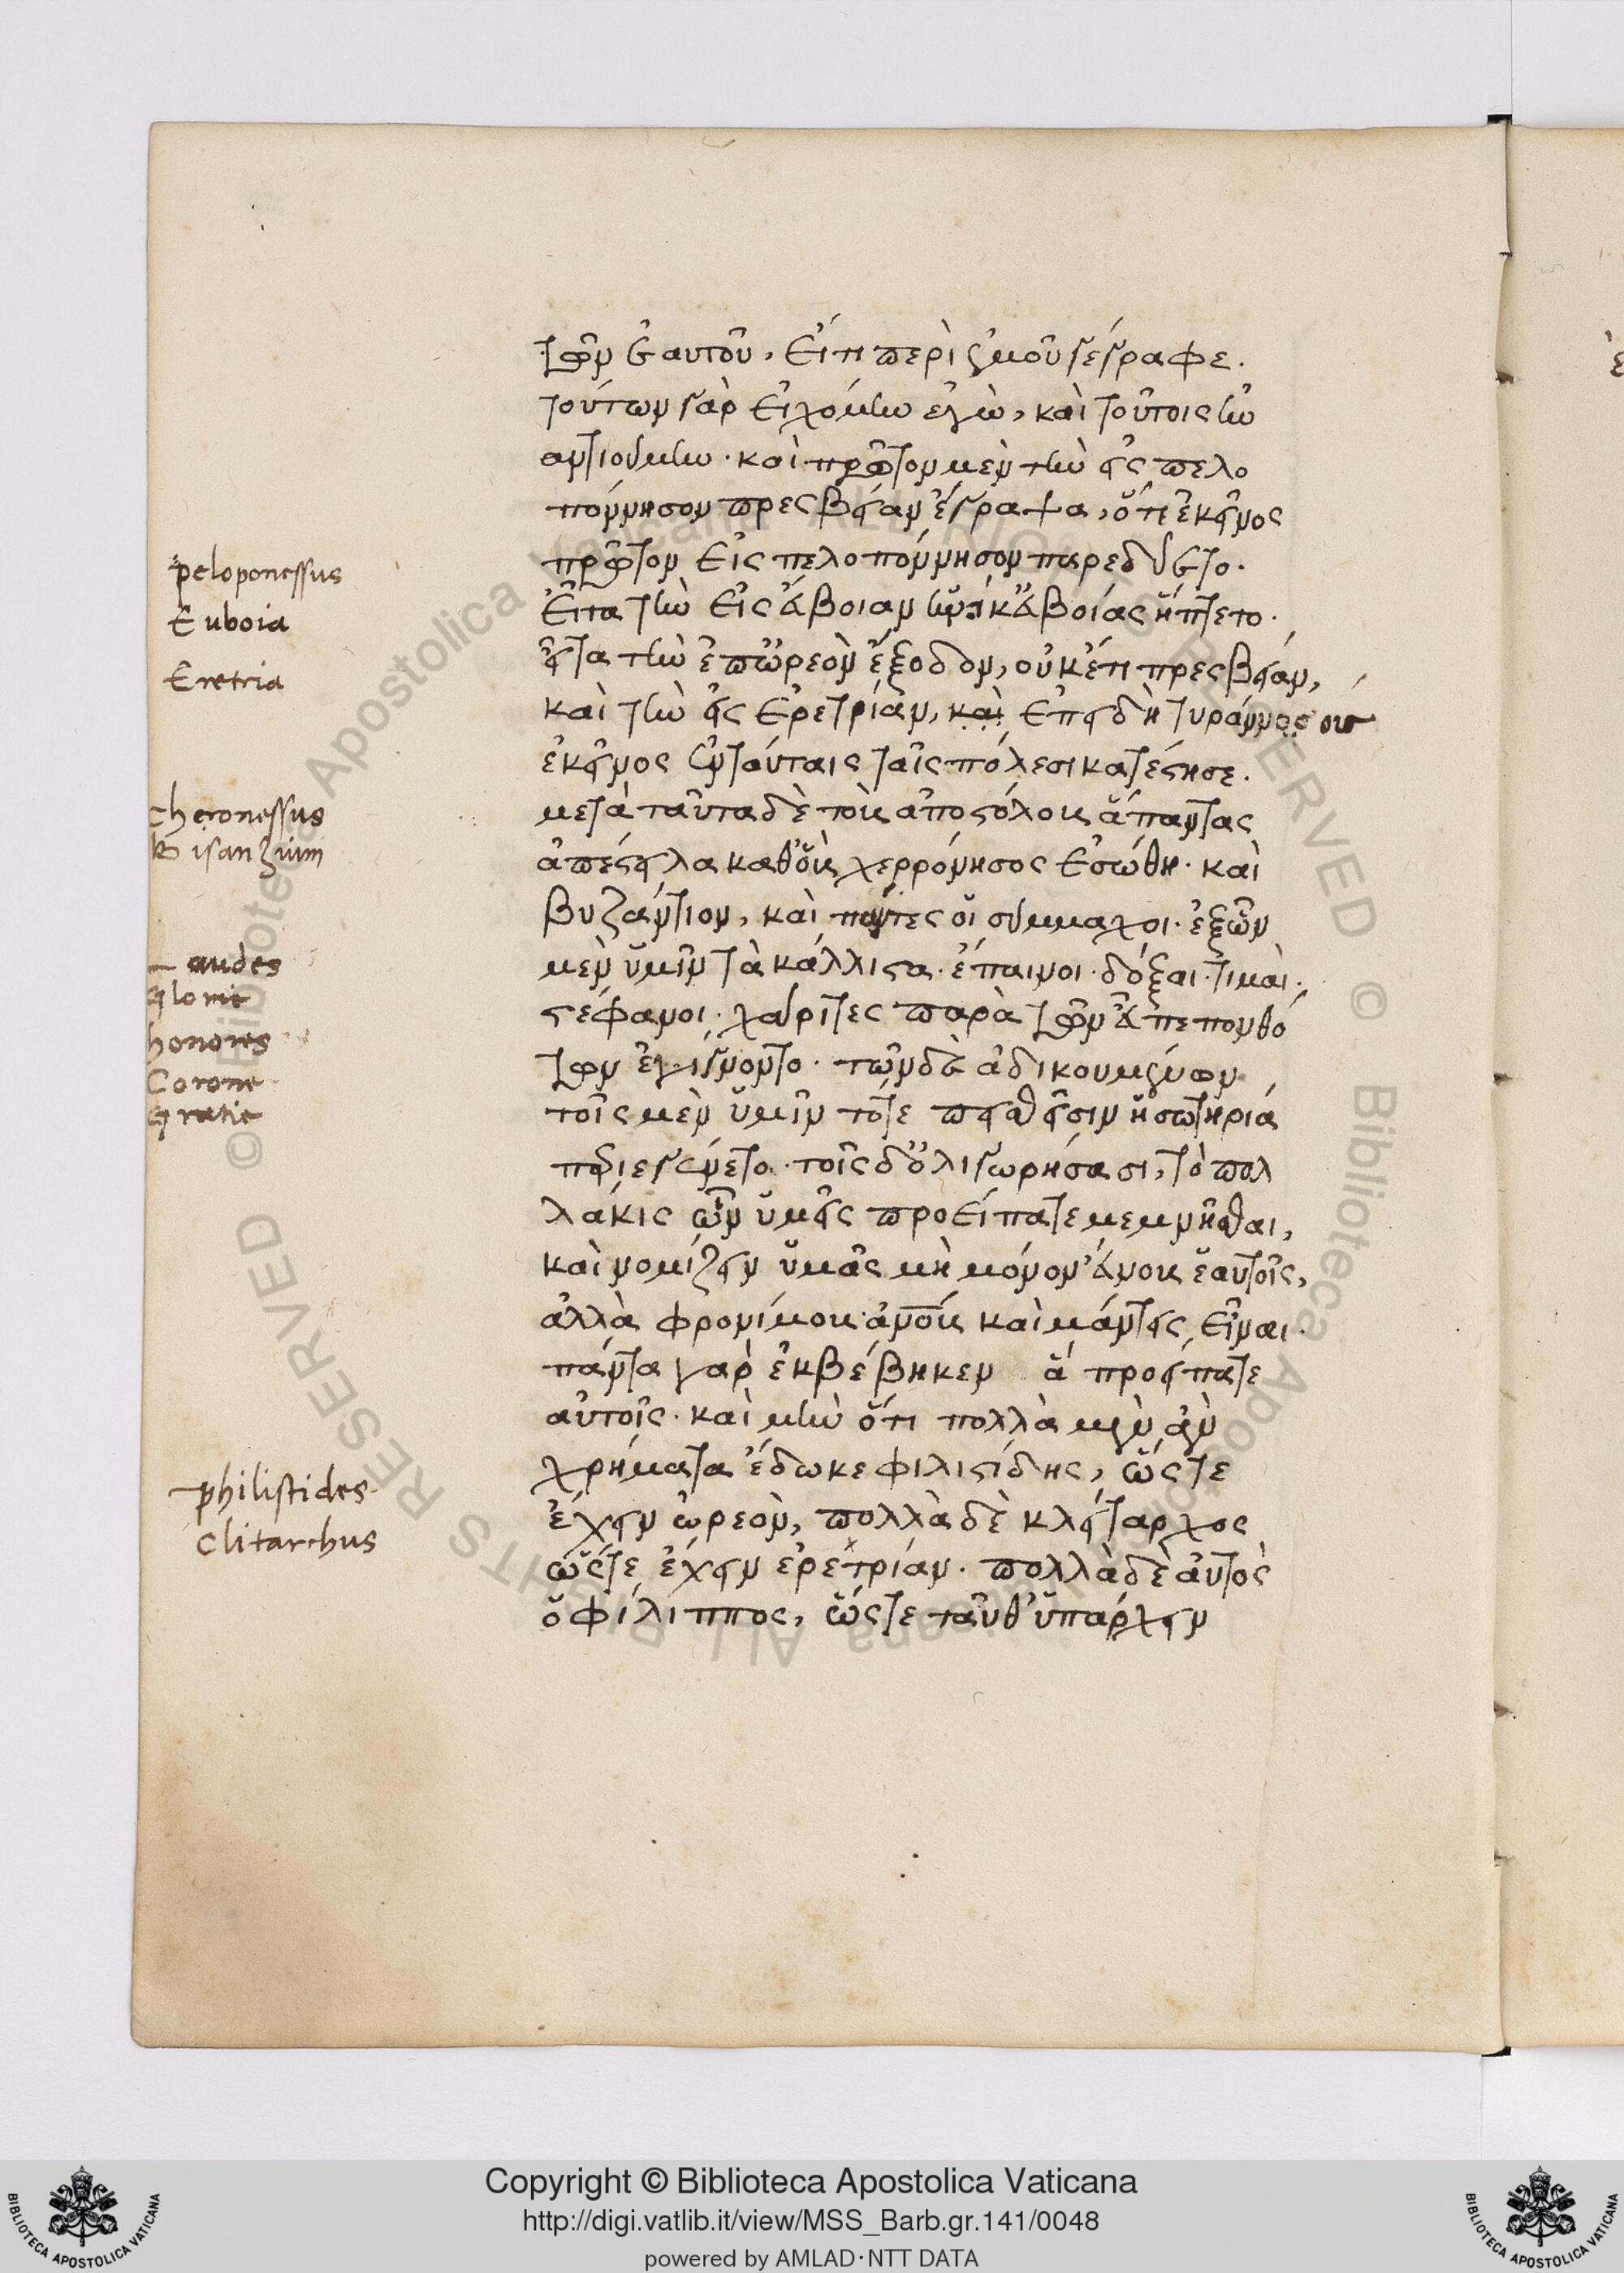 τῶν ἑαυτοῦ, εἴ τι περὶ ἐμοῦ γέγραφε.
τούτων γὰρ εἰχόμην ἐγὼ, καὶ τούτοις ἠν
αντιούμην. καὶ πρῶτον μὲν τὴν εἰς πελο
πόννησον πρεσβείαν ἔγραψα, ὅτι ἐκεῖνος
πρῶτον εἰς πελοπόννησον παρεδύετο.
εἶτα τὴν εἰς εὔβοιαν ἡνίκ' εὐβοίας ἥπτετο.
εἶτα τὴν ἐπ' ὠρεὸν ἔξοδον, οὐκέτι πρεσβείαν,
καὶ τὴν εἰς ἐρετρίαν, καὶ ἐπειδὴ τυράννος ους
ἐκεῖνος ἐν ταύταις ταῖς πόλεσι κατέστησε.
μετὰ ταῦτα δὲ τοὺς αποστόλους ἅπαντας
ἀπέστειλα καθ' οὓς χερρόνησος ἐσώθη. καὶ
βυζάντιον, καὶ πάντες οἱ σύμμαχοι. ἐξ ὧν
μὲν ὑμῖν τὰ κάλλιστα. ἔπαινοι. δόξαι. τιμαὶ.
στέφανοι. χάριτες παρὰ τῶν εὖ πεπονθό
των ἐγίγνοντο. τῶν δὲ ἀδικουμένων
τοῖς μὲν ὑμῖν τότε πεισθεῖσιν ἡ σωτηρία
περιεγένετο. τοῖς δ' ὀλιγωρήσασι, τὸ πολ
λάκις ὧν ὑμεῖς προείπατε μεμνῆσθαι,
καὶ νομίζειν ὑμᾶς μὴ μόνον εὔνους ἑαυτοῖς,
ἀλλὰ φρονίμους ἀνους καὶ μάντεις εἶναι.
πάντα γὰρ ἐκβέβηκεν ἃ προείπατε
αὐτοῖς. καὶ μὴν ὅτι πολλὰ μὲν ἂν
χρήματα ἔδωκε φιλιστίδης, ὥστε
ἔχειν ὠρεὸν, πολλὰ δὲ κλείταρχος
ὥστε ἔχειν ἐρέτριαν. πολλὰ δὲ αὐτὸς
ὁ φίλιππος, ὥστε ταῦθ' ὑπάρχειν
peloponessus
Euboia
Eretria
cheronessus
Bisanzium
Laudes
Glorie
honores
Corone
Gratie
philistides
Clitarchus
Copyright © Biblioteca Apostolica Vaticana
http://digi.vatlib.it/view/MSS_Barb.gr.141/0048
powered by AMLAD·NTT DATA